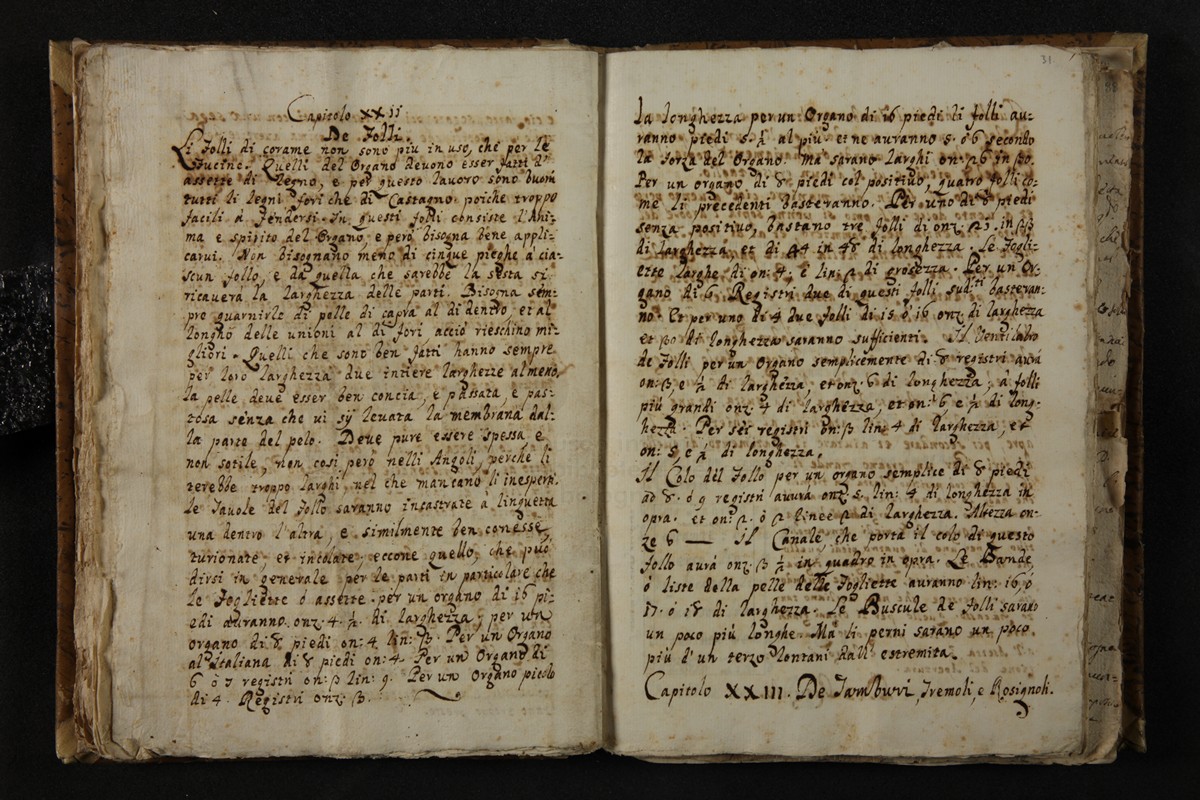 Capitolo XXII
De Folli.
Li Folli di corame non sono più in uso, che per le
Fucine. Quelli del Organo devono esser fatti d'
assette di legno, e per questo lavoro sono buoni
tutti li legni fori che di Castagno poiche troppo
facili à fendersi. In questi folli consiste l'Ani-
ma e spirito del Organo, e però bisogna bene appli-
carvi. Non bisognano meno di cinque pieghe à cia-
scun follo, e da quella che sarebbe la sesta si
ricaverà la larghezza delle parti. Bisogna sem-
pre guarnirle di pelle di capra al di dentro, et al
longho delle unioni al di fori acciò rieschino mi-
gliori. Quelli che sono ben fatti hanno sempre
per loro larghezza due intiere larghezze almeno,
la pelle deve esser ben concia, e passata, e pas-
tosa senza che vi sÿ levata la membrana dal-
la parte del pelo. Deve pure essere spessa e
non sotile, non così però nelli Angoli, perche li
terebbe troppo larghi, nel che mancano li inesperti.
Le Tavole del follo saranno incastrate à linguetta
una dentro l'altra, e similmente ben conesse,
turionate, et incolate, eccone quello, che può
dirsi in generale per le parti in particolare che
le Fogliette ò assette per un organo di 16 pi-
edi avranno onz. 4. ½ di larghezza; per un
organo di 8 piedi on: 4 lin: 3. Per un Organo
al'Italiana di 8 piedi on: 4 Per un Organo di
6 ò 7 registri on: 3 lin: 9. Per un Organo picolo
di 4. Registri onz. 3.
31
la longhezza per un Organo di 16 piedi li folli au-
ranno piedi 5. ½ al più et ne auranno 5. ò 6 secondo
la forza del Organo. ma sarano larghi on: 26 in 30.
Per un organo di 8 piedi col positivo, quatro folli co-
me li precedenti basteranno. Per uno di 8 piedi
senza positivo, bastano tre folli di onz. 25. in 33
di larghezza, et di 44 in 48 di longhezza. Le Fogli-
ette larghe di on: 4. e lin: 2 di grosezza. Per un Or-
gano di 6 Registri due di questi folli sud:ti basteran-
no. Et per uno di 4 due folli di 15 ò 16 onz di larghezza
et 30 di longhezza saranno sufficienti. Il Ventilabro
de folli per un Organo semplicemente di 8 registri avrà
on: 3 e ½ di larghezza, et onz. 6 di longhezza; à folli
più grandi onz. 4 di larghezza, et on: 6 e ½ di long-
hezza. Per sei registri on: 3 lin: 4 di larghezza, et
on: 5, e ½ di longhezza.
Il Colo del Follo per un organo semplice di 8 piedi
ad 8. ò 9 registri avurà onz. 5. lin: 4 di longhezza in
opra. et on: 2. ò 2 linee 2 di larghezza. Altezza on-
ze 6 — Il Canale, che porta il colo di questo
follo aurà onz. 3 ½ in quadro in opra. Le Bande,
ò liste della pelle delle Fogliette auranno lin: 16, ò
17. ò 18 di larghezza. Le Buscule de folli sarano
un poco più longhe. Ma li perni sarano un poco
più d'un terzo lontani dall'estremita.
Capitolo XXIII. De Tamburi, Tremoli, e Rosignoli.